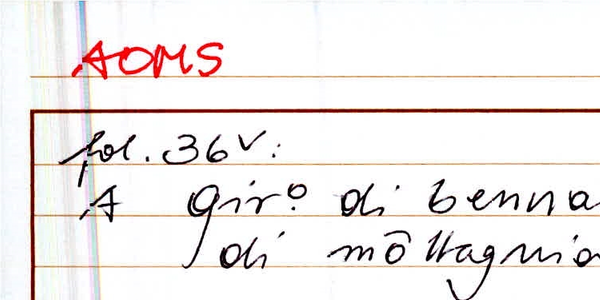 AOMS
fol. 36v:
A Gir.º di benna
di mōttagnia